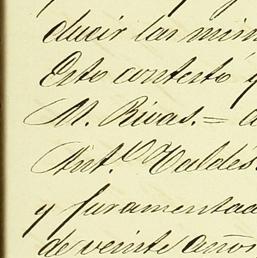 ducir las min
Esto contestó y
M. Rivas.=
Ant.º Valdés.
y juramentad
de veinte años